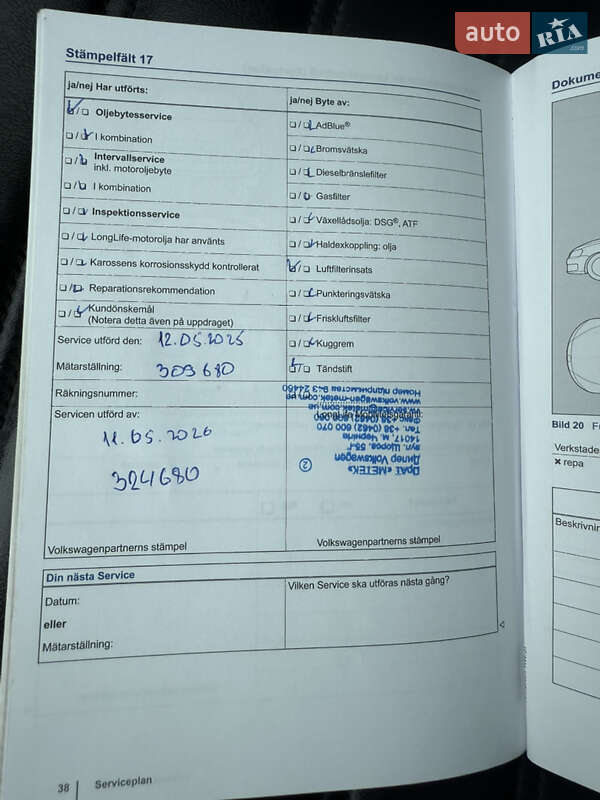 auto RIA.com
Stämpelfält 17
ja/nej Har utförts:
ja/nej Byte av:
Oljebytesservice
I kombination
Intervallservice
inkl. motoroljebyte
I kombination
Inspektionsservice
LongLife-motorolja har använts
Karossens korrosionsskydd kontrollerat
Reparationsrekommendation
Kundönskemål
(Notera detta även på uppdraget)
AdBlue®
Bromsvätska
Dieselbränslefilter
Gasfilter
Växellådsolja: DSG®, ATF
Haldexkoppling: olja
Luftfilterinsats
Punkteringsvätska
Friskluftsfilter
Kuggrem
Tändstift
Service utförd den: 12.05.2025
Mätarställning: 309680
Räkningsnummer:
Servicen utförd av:
11.05.2026
324680
ПрАТ «МЕТЕК»
Дилер Volkswagen
вул. Шороса, 55-г
14017, м. Чернігів
Тел. + 38 (0462) 600 070
www.volkswagen-metek.com.ua
Номер підприємства 9-3 24450
2
Volkswagenpartnerns stämpel
Volkswagenpartnerns stämpel
Din nästa Service
Datum:
eller
Mätarställning:
Vilken Service ska utföras nästa gång?
38 Serviceplan
Dokume
Bild 20
Verkstade
× repa
Beskrivnin